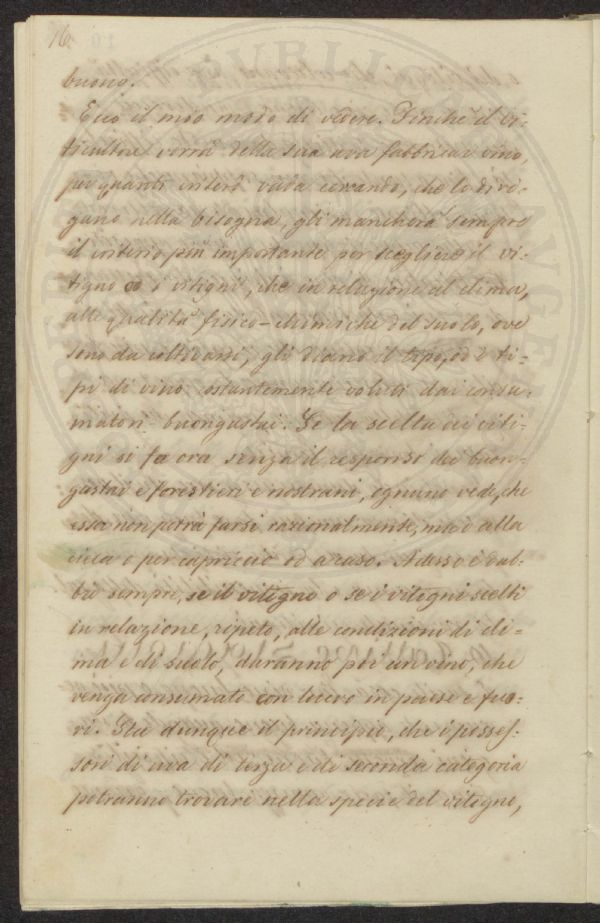 16.
buono.
Ecco il mio modo di vedere. Finchè il vi-
ticultore vorrà della sua uva fabbricar vino,
per quanti criterii vada cercando, che lo diri-
gano nella bisogna, gli mancherà sempre
il criterio più importante per scegliere il vi-
tigno od i vitigni, che in relazione al clima,
alle qualità fisico-chimiche del suolo, ove
sono da coltivarsi, gli diano il tipo, od i ti-
pi di vino costantemente voluti dai consu-
matori buongustai. Se la scelta dei viti-
gni si fa ora senza il responso dei buon-
gustai e forestieri e nostrani, ognuno vede, che
essa non potrà farsi razionalmente, ma è alla
cieca o per capriccio od a caso. Adesso è dub-
bio sempre, se il vitigno o se i vitigni scelti
in relazione, ripeto, alle condizioni di cli-
ma e di suolo, daranno poi un vino, che
venga consumato con lucro in paese e fuo-
ri. Sta dunque il principio, che i posses-
sori di uva di terza e di seconda categoria
potranno trovare nella specie del vitigno,